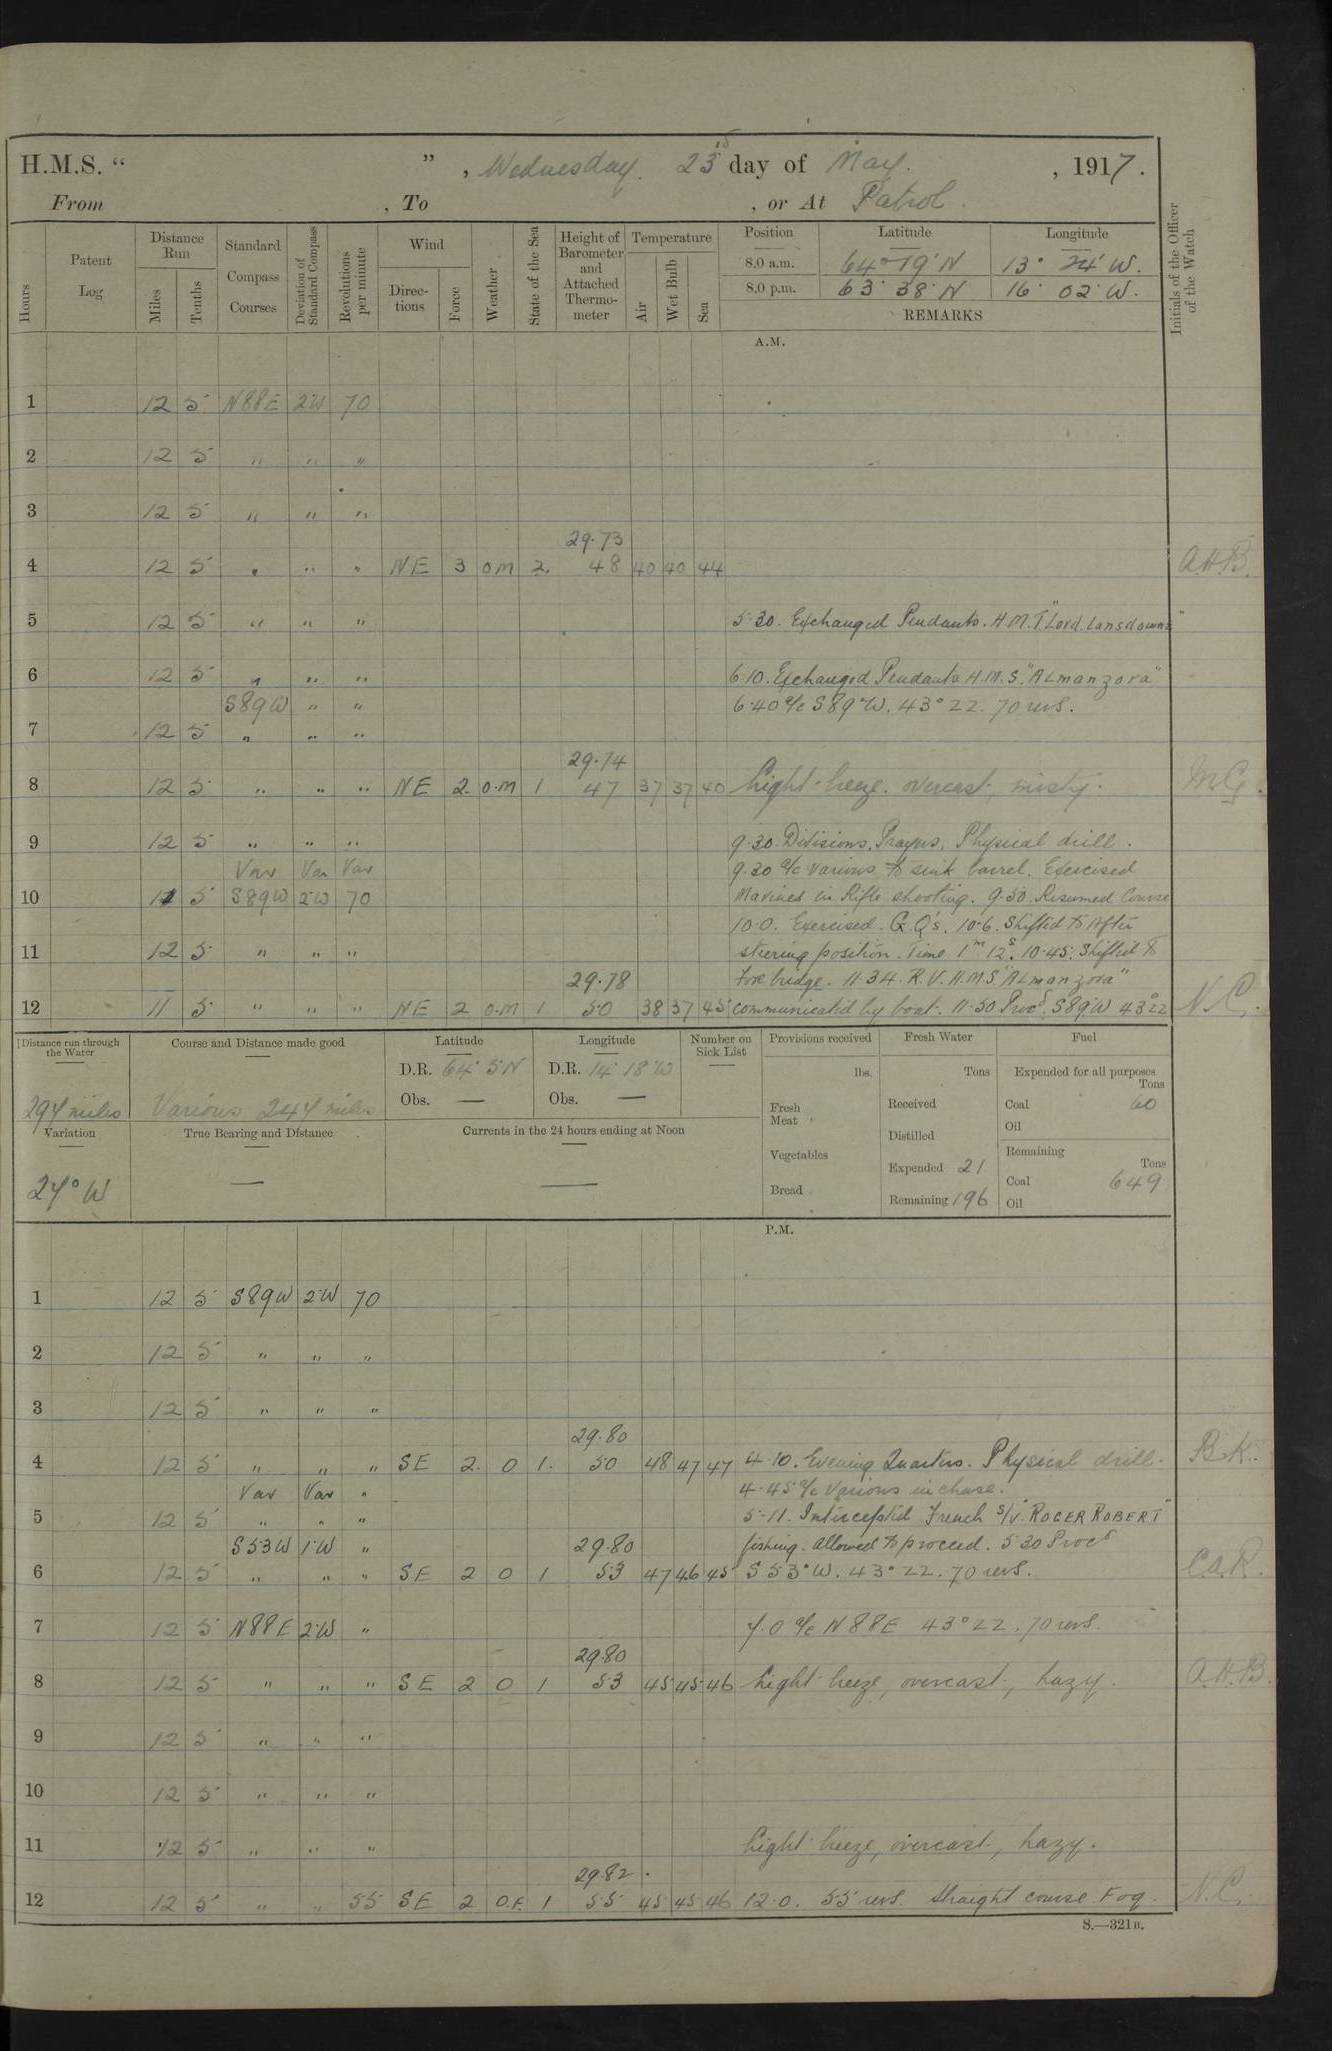 H.M.S. “ ”, Wednesday. 23rd day of May. , 1917.
From , To , or At Patrol.
Hours
Patent Log
Distance Run
Miles
Tenths
Standard Compass Courses
Deviation of Standard Compass
Revolutions per minute
Wind
Directions
Force
Weather
State of the Sea
Height of Barometer and Attached Thermometer
Temperature
Air
Wet Bulb
Sea
Position Latitude Longitude
8.0 a.m. 64° 19' N 13° 24' W.
8.0 p.m. 63° 38' N 16° 02' W.
REMARKS
Initials of the Officer of the Watch
A.M.
1 12 5 N88E 2°W 70
2 12 5 " " "
3 12 5 " " "
29.73
4 12 5 " " " NE 3 om 2. 48 40 40 44 A.H.B.
5 12 5 " " " 5.30. Exchanged Pendants. H.M.T. "Lord Lansdowne"
6 12 5 " " " 6.10. Exchanged Pendants H.M.S. "Almanzora"
S89W " " 6.40 a/c S89°W. 43° ZZ. 70 revs.
7 12 5 " " "
29.74
8 12 5 " " " NE 2. o.m 1 47 37 37 40 Light breeze. overcast, misty. M.G.
9 12 5 " " " 9.30. Divisions, Prayers, Physical drill.
Var Var Var 9.30 a/c various to sink barrel. Exercised
10 12 5 S89W 2°W 70 Marines in Rifle shooting. 9.50. Resumed Course
10.0. Exercised. G.Q's. 10.6. Shifted to After
11 12 5 " " " steering position. Time 1m 12s. 10.45. Shifted to
29.78 Fore bridge. 11.34. R.V. H.M.S "Almanzora"
12 11 5 " " " NE 2 o.m 1 50 38 37 45 communicated by boat. 11.50 Procd. S89°W 43° ZZ N.C.
Distance run through the Water
294 miles
Course and Distance made good
Various 244 miles
Latitude
D.R. 64° 5'N
Obs. —
Longitude
D.R. 14° 18'W
Obs. —
Number on Sick List
Provisions received
lbs.
Fresh Meat
Vegetables
Bread
Fresh Water
Tons
Received
Distilled
Expended 21
Remaining 196
Fuel
Expended for all purposes
Tons
Coal 60
Oil
Remaining
Tons
Coal 649
Oil
Variation
24° W
True Bearing and Distance
—
Currents in the 24 hours ending at Noon
—
P.M.
1 12 5 S89W 2°W 70
2 12 5 " " "
3 12 5 " " "
29.80
4 12 5 " " " SE 2. 0 1. 50 48 47 47 4.10. Evening Quarters. Physical drill. B.K.
Var Var " 4.45 a/c various in chase.
5 12 5 " " " 5-11. Intercepted French S/V. "ROGER ROBERT"
S53W 1°W " 29.80 fishing. allowed to proceed. 5.30 Procd
6 12 5 " " " SE 2 0 1 53 47 46 45 S 53° W. 43° ZZ. 70 revs. C.A.R.
7 12 5 N88E 2°W " 7.0 a/c N88E 43° ZZ. 70 revs.
29.80
8 12 5 " " " SE 2 0 1 53 45 45 46 Light breeze, overcast, hazy. A.H.B.
9 12 5 " " "
10 12 5 " " "
11 12 5 " " " Light breeze, overcast, hazy.
29.82
12 12 5 " " 55 SE 2 O.F. 1 55 45 45 46 12.0. 55 revs. straight course Fog. N.C.
S.—321B.